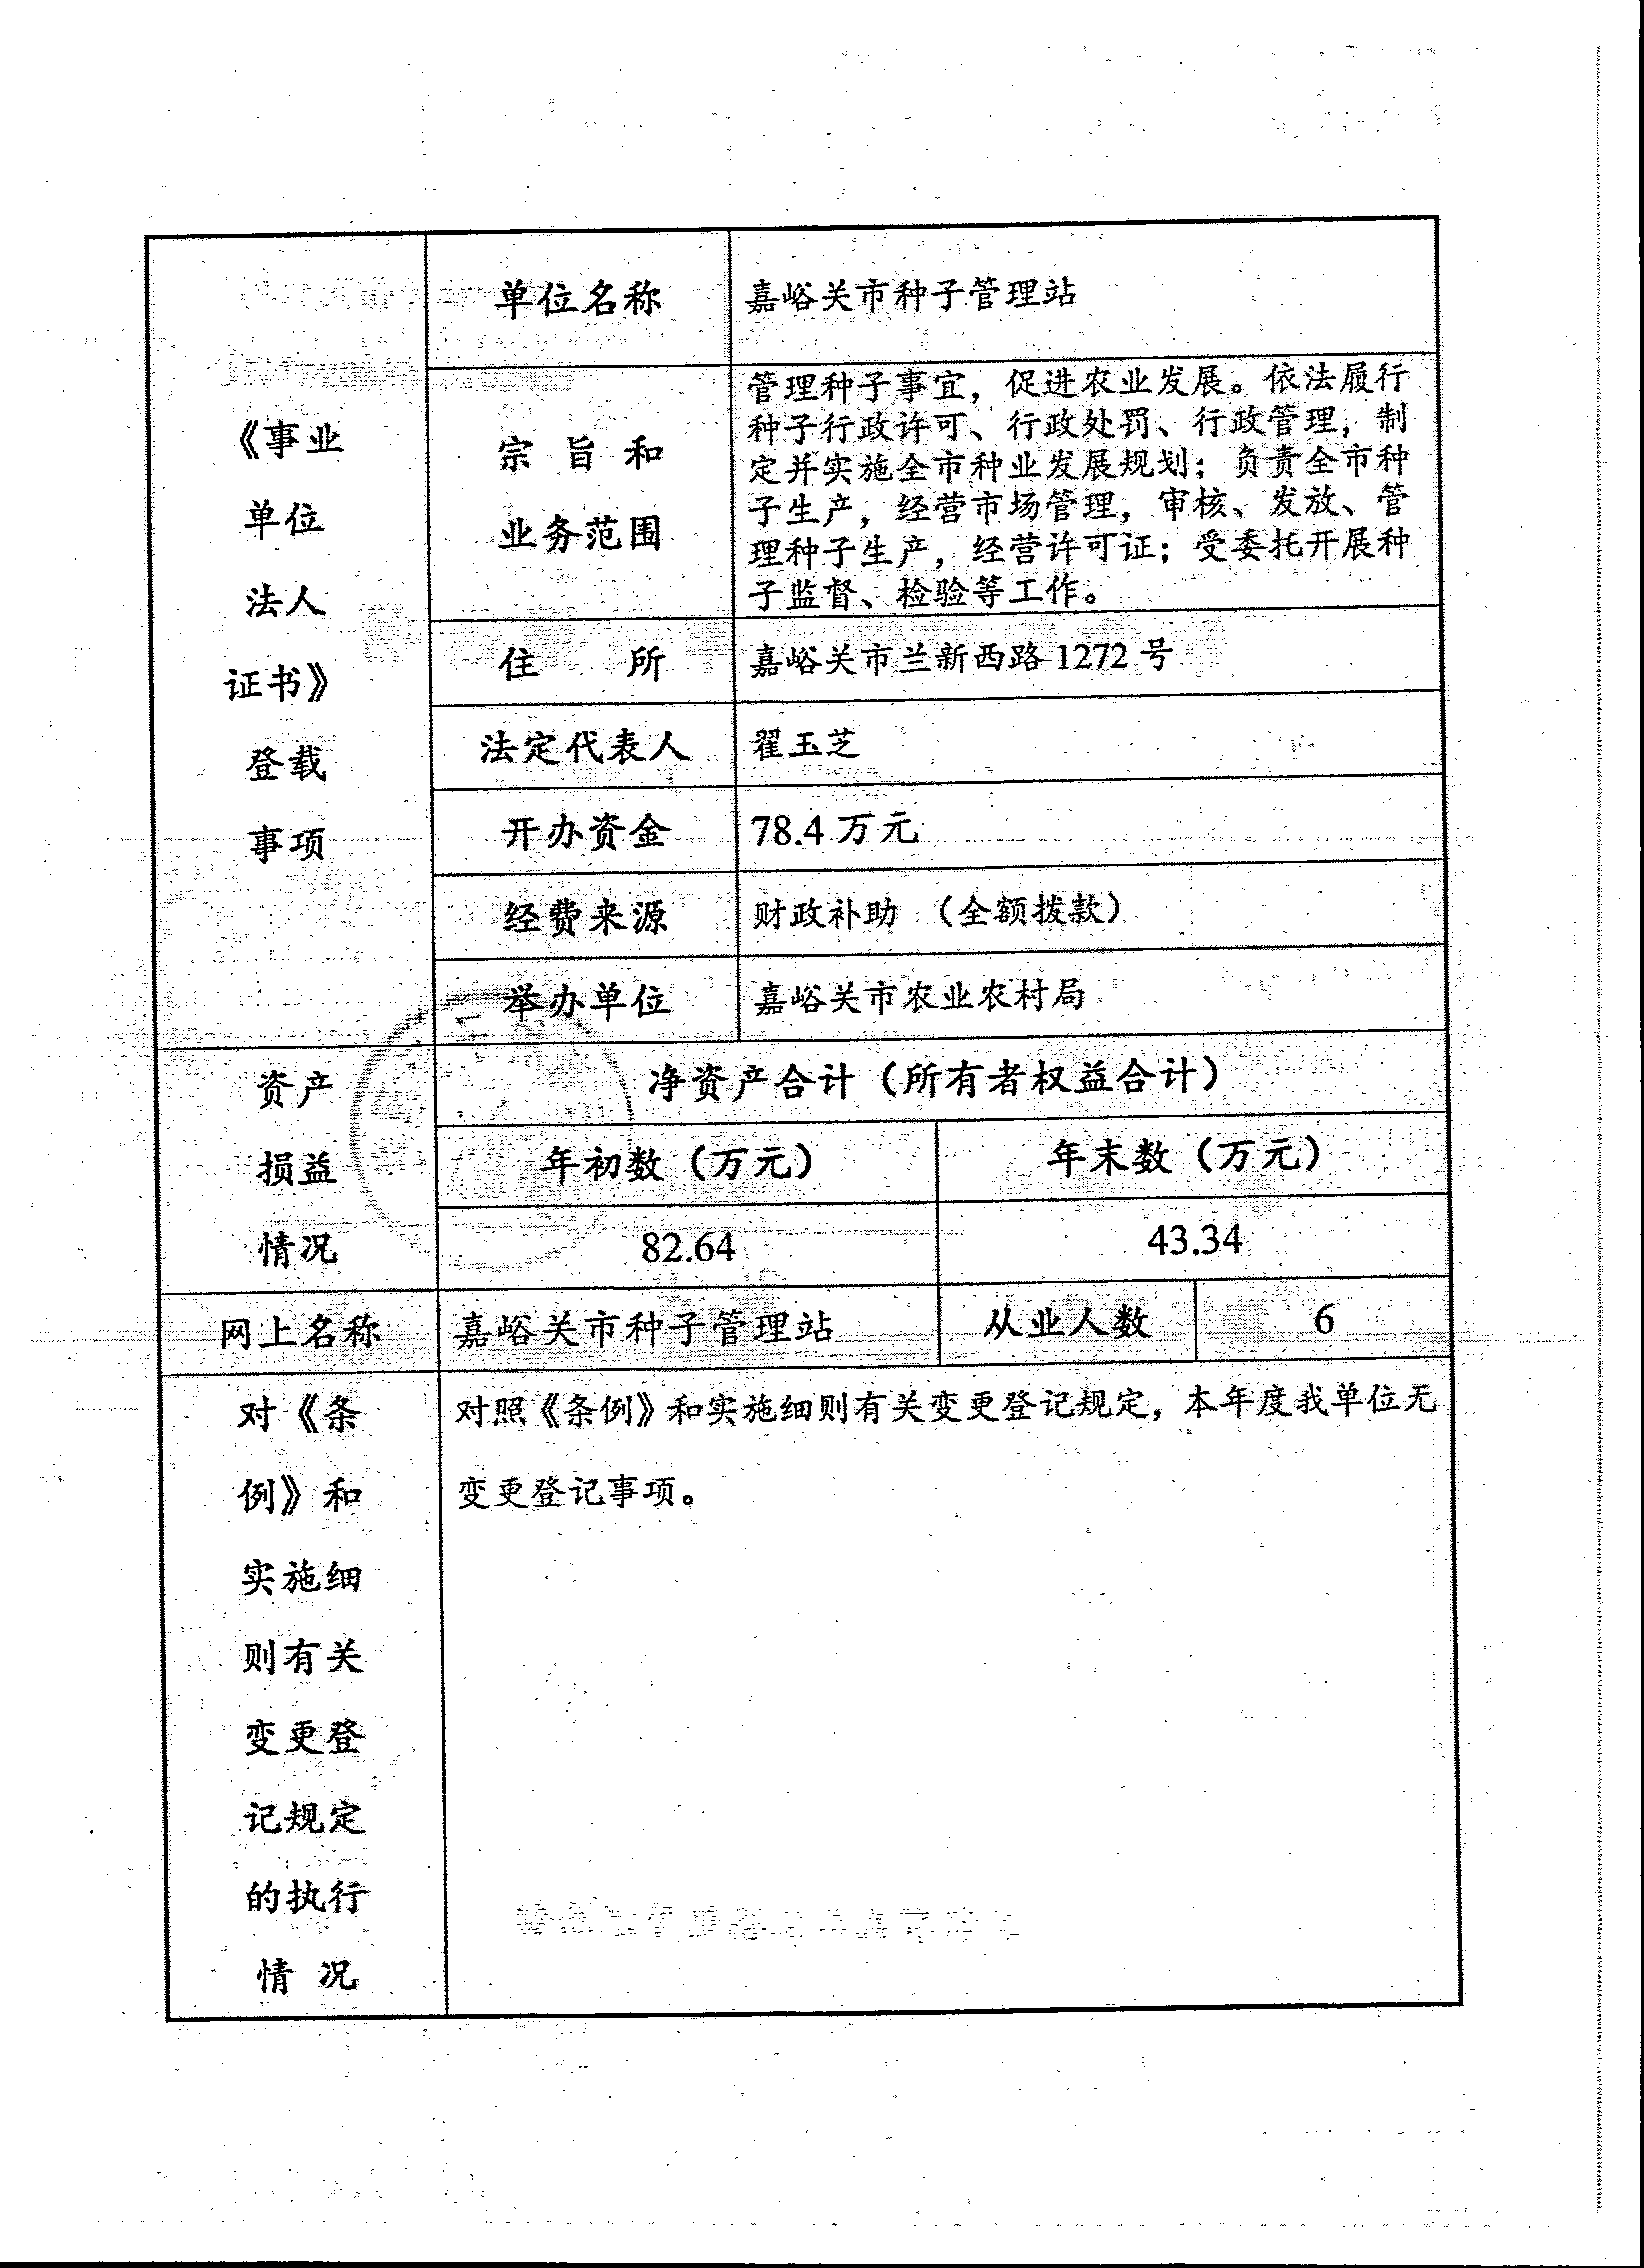 单位名称 嘉峪关市种子管理站
《事业
单位
法人
证书》
登载
事项
宗旨和
业务范围
管理种子事宜，促进农业发展。依法履行
种子行政许可、行政处罚、行政管理，制
定并实施全市种业发展规划；负责全市种
子生产，经营市场管理，审核、发放、管
理种子生产，经营许可证；受委托开展种
子监督、检验等工作。
住 所 嘉峪关市兰新西路1272号
法定代表人 翟玉芝
开办资金 78.4万元
经费来源 财政补助 （全额拨款）
举办单位 嘉峪关市农业农村局
资产
损益
情况
净资产合计（所有者权益合计）
年初数（万元） 年末数（万元）
82.64 43.34
网上名称 嘉峪关市种子管理站 从业人数 6
对《条
例》和
实施细
则有关
变更登
记规定
的执行
情 况
对照《条例》和实施细则有关变更登记规定，本年度我单位无
变更登记事项。